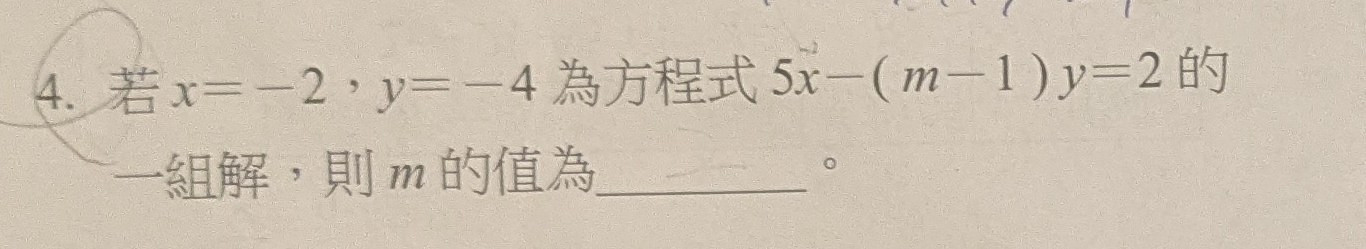 4. 若 x=−2，y=−4 為方程式 5x−(m−1)y=2 的
一組解，則 m 的值為________。